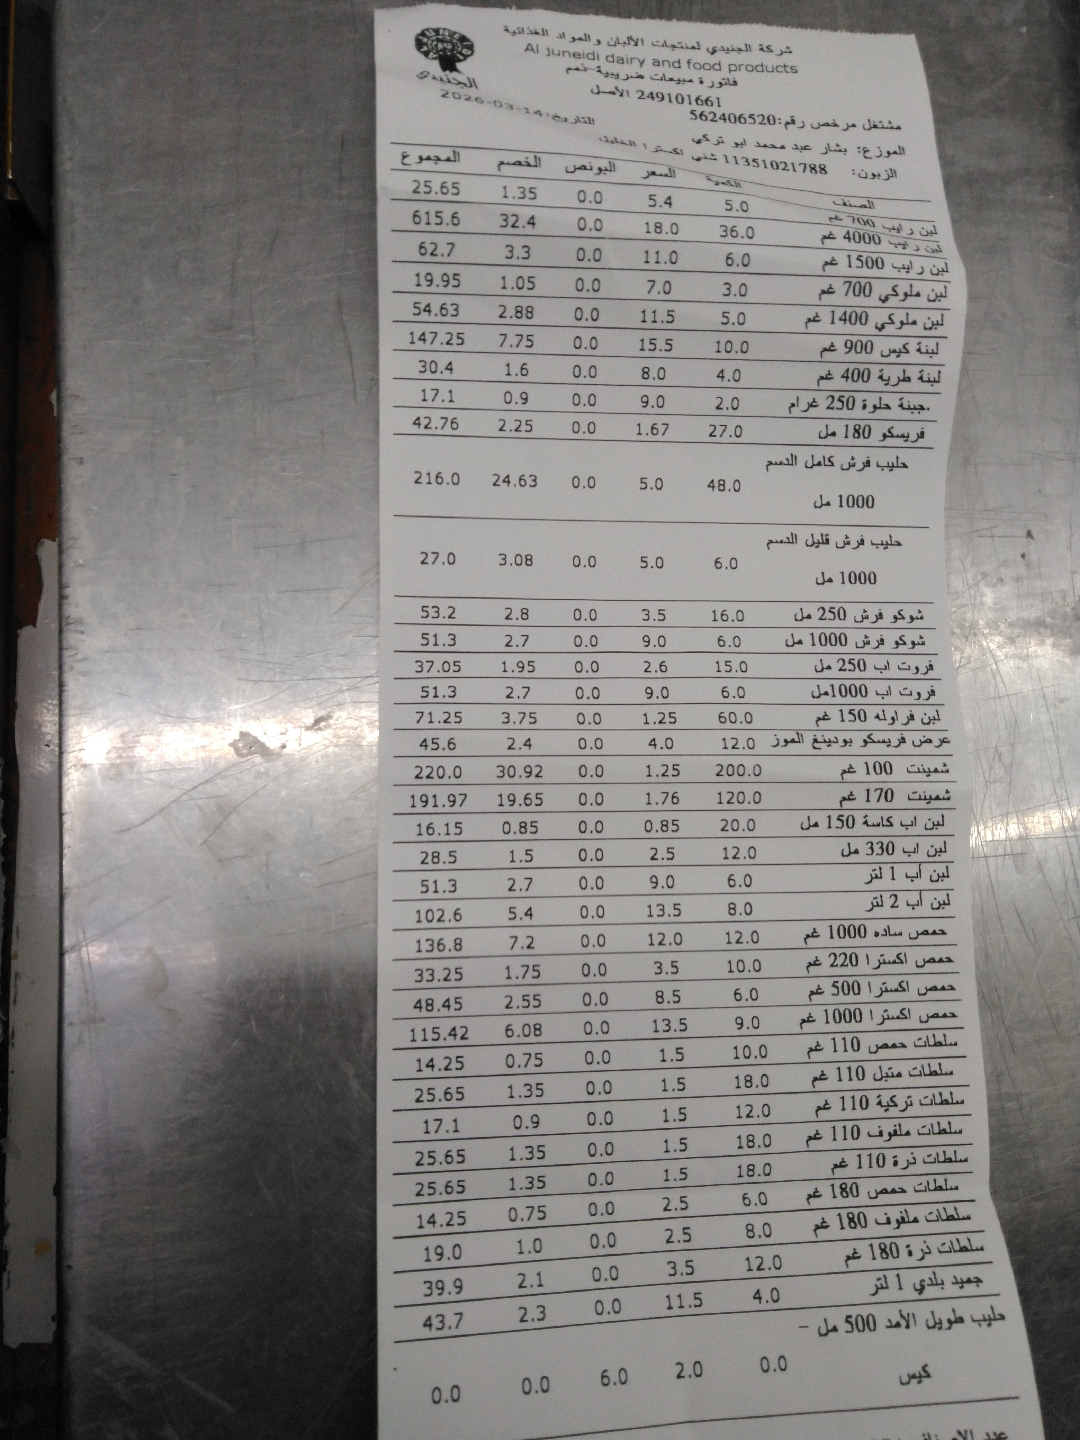 شركة الجنيدي لمنتجات الألبان والمواد الغذائية
Al Juneidi dairy and food products
الجنيدي
فاتورة مبيعات ضريبية ذمم
249101661 الأصل
مشتغل مرخص رقم:562406520
التاريخ:2026-03-14
الموزع: بشار عبد محمد ابو تركي
الزبون: 11351021788 شني اكسترا الخليل
الصنف الكمية السعر البونص الخصم المجموع
لبن رايب 700 غم 5.0 5.4 0.0 1.35 25.65
لبن رايب 4000 غم 36.0 18.0 0.0 32.4 615.6
لبن رايب 1500 غم 6.0 11.0 0.0 3.3 62.7
لبن ملوكي 700 غم 3.0 7.0 0.0 1.05 19.95
لبن ملوكي 1400 غم 5.0 11.5 0.0 2.88 54.63
لبنة كيس 900 غم 10.0 15.5 0.0 7.75 147.25
لبنة طرية 400 غم 4.0 8.0 0.0 1.6 30.4
جبنة حلوة 250 غرام. 2.0 9.0 0.0 0.9 17.1
فريسكو 180 مل 27.0 1.67 0.0 2.25 42.76
حليب فرش كامل الدسم
1000 مل 48.0 5.0 0.0 24.63 216.0
حليب فرش قليل الدسم
1000 مل 6.0 5.0 0.0 3.08 27.0
شوكو فرش 250 مل 16.0 3.5 0.0 2.8 53.2
شوكو فرش 1000 مل 6.0 9.0 0.0 2.7 51.3
فروت اب 250 مل 15.0 2.6 0.0 1.95 37.05
فروت اب 1000مل 6.0 9.0 0.0 2.7 51.3
لبن فراوله 150 غم 60.0 1.25 0.0 3.75 71.25
عرض فريسكو بودينغ الموز 12.0 4.0 0.0 2.4 45.6
شمينت 100 غم 200.0 1.25 0.0 30.92 220.0
شمينت 170 غم 120.0 1.76 0.0 19.65 191.97
لبن اب كاسة 150 مل 20.0 0.85 0.0 0.85 16.15
لبن اب 330 مل 12.0 2.5 0.0 1.5 28.5
لبن أب 1 لتر 6.0 9.0 0.0 2.7 51.3
لبن أب 2 لتر 8.0 13.5 0.0 5.4 102.6
حمص ساده 1000 غم 12.0 12.0 0.0 7.2 136.8
حمص اكسترا 220 غم 10.0 3.5 0.0 1.75 33.25
حمص اكسترا 500 غم 6.0 8.5 0.0 2.55 48.45
حمص اكسترا 1000 غم 9.0 13.5 0.0 6.08 115.42
سلطات حمص 110 غم 10.0 1.5 0.0 0.75 14.25
سلطات متبل 110 غم 18.0 1.5 0.0 1.35 25.65
سلطات تركية 110 غم 12.0 1.5 0.0 0.9 17.1
سلطات ملفوف 110 غم 18.0 1.5 0.0 1.35 25.65
سلطات ذرة 110 غم 18.0 1.5 0.0 1.35 25.65
سلطات حمص 180 غم 6.0 2.5 0.0 0.75 14.25
سلطات ملفوف 180 غم 8.0 2.5 0.0 1.0 19.0
سلطات ذرة 180 غم 12.0 3.5 0.0 2.1 39.9
جميد بلدي 1 لتر 4.0 11.5 0.0 2.3 43.7
حليب طويل الأمد 500 مل -
كيس 0.0 2.0 6.0 0.0 0.0